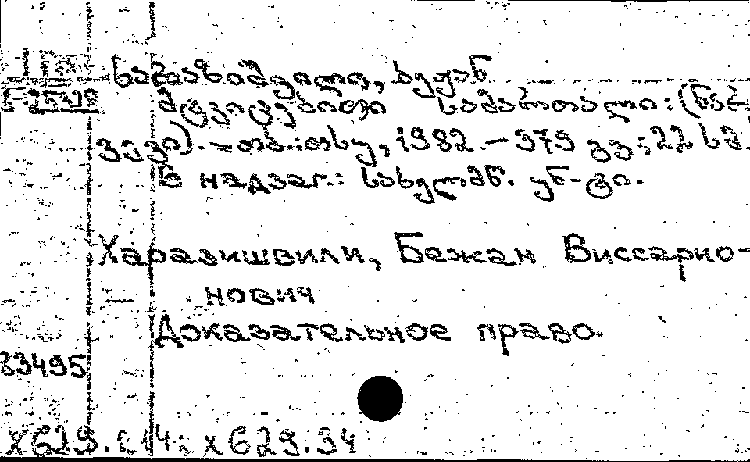 ხარაზიშვილი, ბეჟან
მტკიცებითი სამართალი: (ნარ-
კვევი). – თბ.: თსუ, 1982. – 379 გვ.; 22 სმ.
В надзаг.: სახელმწ. უნ-ტი.
Харазишвили, Бежан Виссарио-
нович
Доказательное право.
83495
Х629.34